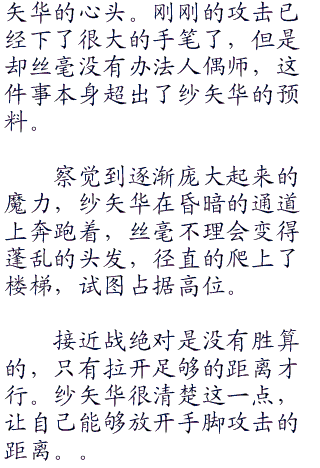 矢华的心头。刚刚的攻击已
经下了很大的手笔了，但是
却丝毫没有办法人偶师，这
件事本身超出了纱矢华的预
料。
察觉到逐渐庞大起来的
魔力，纱矢华在昏暗的通道
上奔跑着，丝毫不理会变得
蓬乱的头发，径直的爬上了
楼梯，试图占据高位。
接近战绝对是没有胜算
的，只有拉开足够的距离才
行。纱矢华很清楚这一点，
让自己能够放开手脚攻击的
距离。。